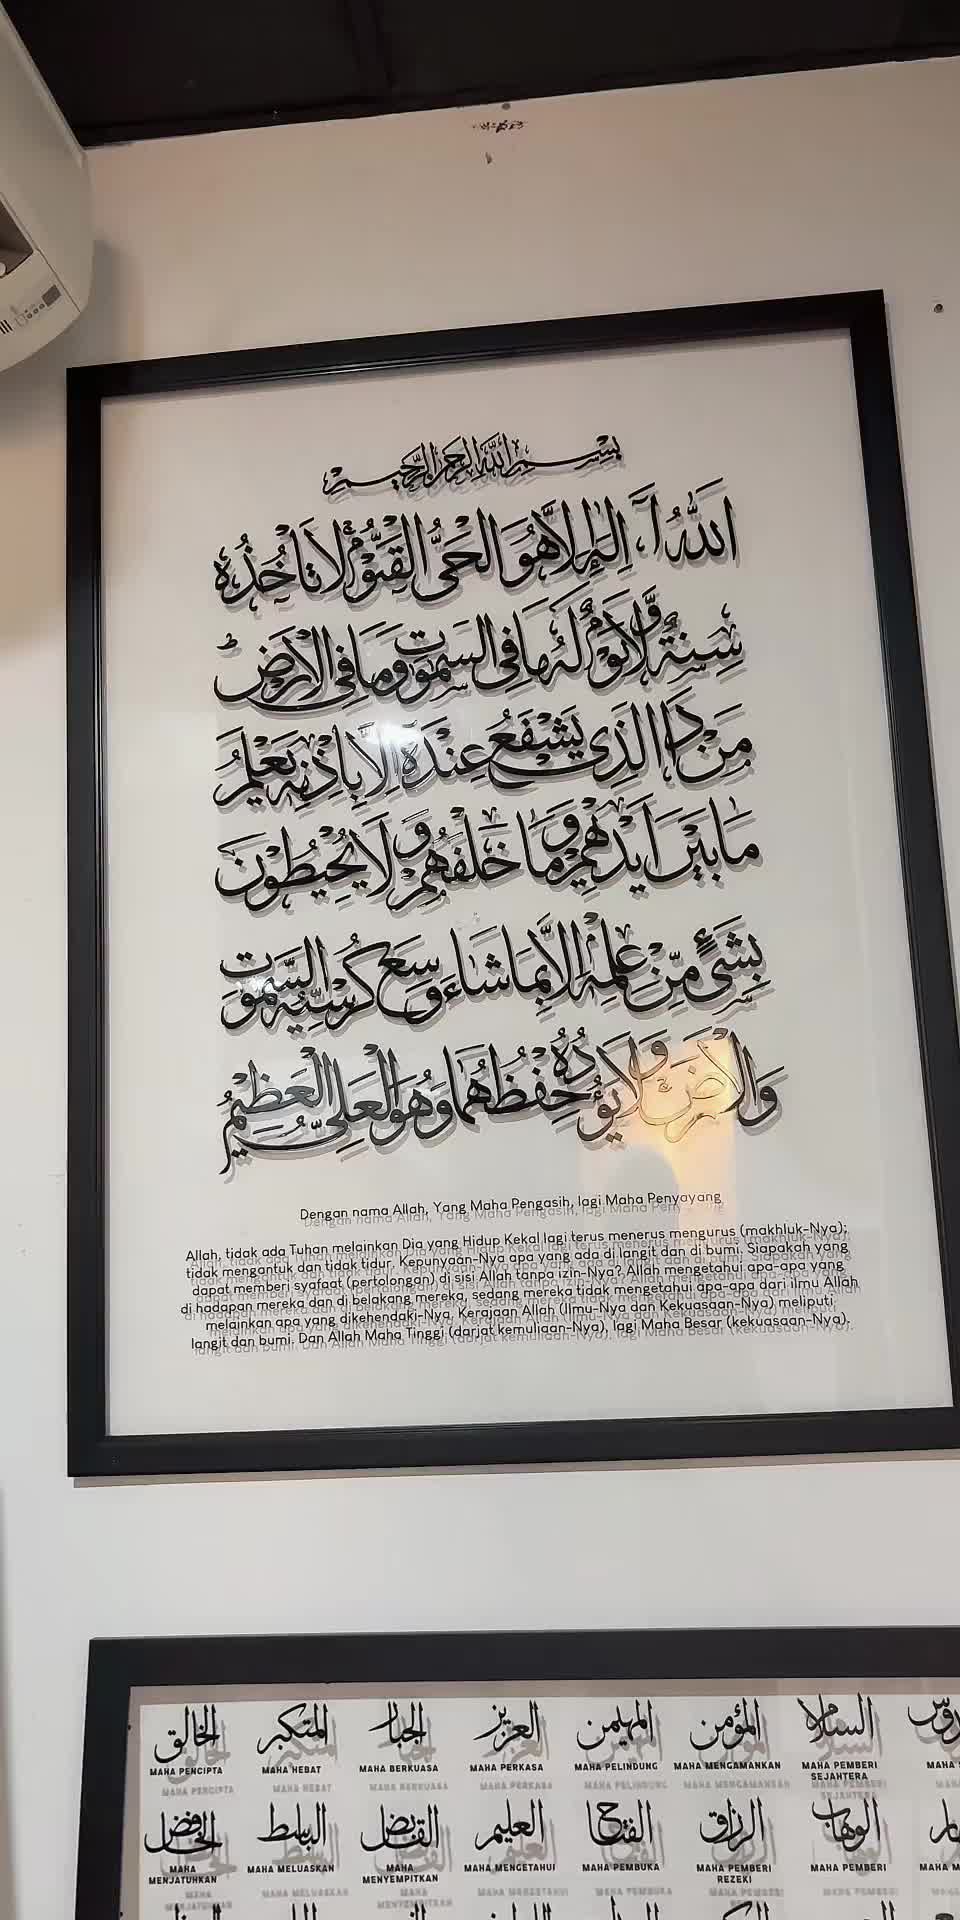 بِسْمِ اللَّهِ الرَّحْمَٰنِ الرَّحِيمِ
اَللّٰهُ لَآ اِلٰهَ اِلَّا هُوَ الْحَيُّ الْقَيُّوْمُ لَا تَأْخُذُهٗ
سِنَةٌ وَّلَا نَوْمٌ لَهٗ مَا فِى السَّمٰوٰتِ وَمَا فِى الْاَرْضِ ط
مَنْ ذَا الَّذِيْ يَشْفَعُ عِنْدَهٗٓ اِلَّا بِاِذْنِهٖ يَعْلَمُ
مَا بَيْنَ اَيْدِيْهِمْ وَمَا خَلْفَهُمْ وَلَا يُحِيْطُوْنَ
بِشَيْءٍ مِّنْ عِلْمِهٖٓ اِلَّا بِمَا شَاءَ وَسِعَ كُرْسِيُّهُ السَّمٰوٰتِ
وَالْاَرْضَ وَلَا يَئُوْدُهٗ حِفْظُهُمَا وَهُوَ الْعَلِيُّ الْعَظِيْمُ
Dengan nama Allah, Yang Maha Pengasih, lagi Maha Penyayang
Allah, tidak ada Tuhan melainkan Dia yang Hidup Kekal lagi terus menerus mengurus (makhluk-Nya);
tidak mengantuk dan tidak tidur. Kepunyaan-Nya apa yang ada di langit dan di bumi. Siapakah yang
dapat memberi syafaat (pertolongan) di sisi Allah tanpa izin-Nya? Allah mengetahui apa-apa yang
di hadapan mereka dan di belakang mereka, sedang mereka tidak mengetahui apa-apa dari ilmu Allah
melainkan apa yang dikehendaki-Nya. Kerajaan Allah (Ilmu-Nya dan Kekuasaan-Nya) meliputi
langit dan bumi. Dan Allah Maha Tinggi (darjat kemuliaan-Nya), lagi Maha Besar (kekuasaan-Nya).
السلام المؤمن المهيمن العزيز الجبار المتكبر الخالق
MAHA PENCIPTA MAHA HEBAT MAHA BERKUASA MAHA PERKASA MAHA PELINDUNG MAHA MENGAMANKAN MAHA PEMBERI SEJAHTERA MAHA
الوهاب الرزاق الفتاح العليم القابض الباسط الخافض
MAHA MENJATUHKAN MAHA MELUASKAN MAHA MENYEMPITKAN MAHA MENGETAHUI MAHA PEMBUKA MAHA PEMBERI REZEKI MAHA PEMBERI